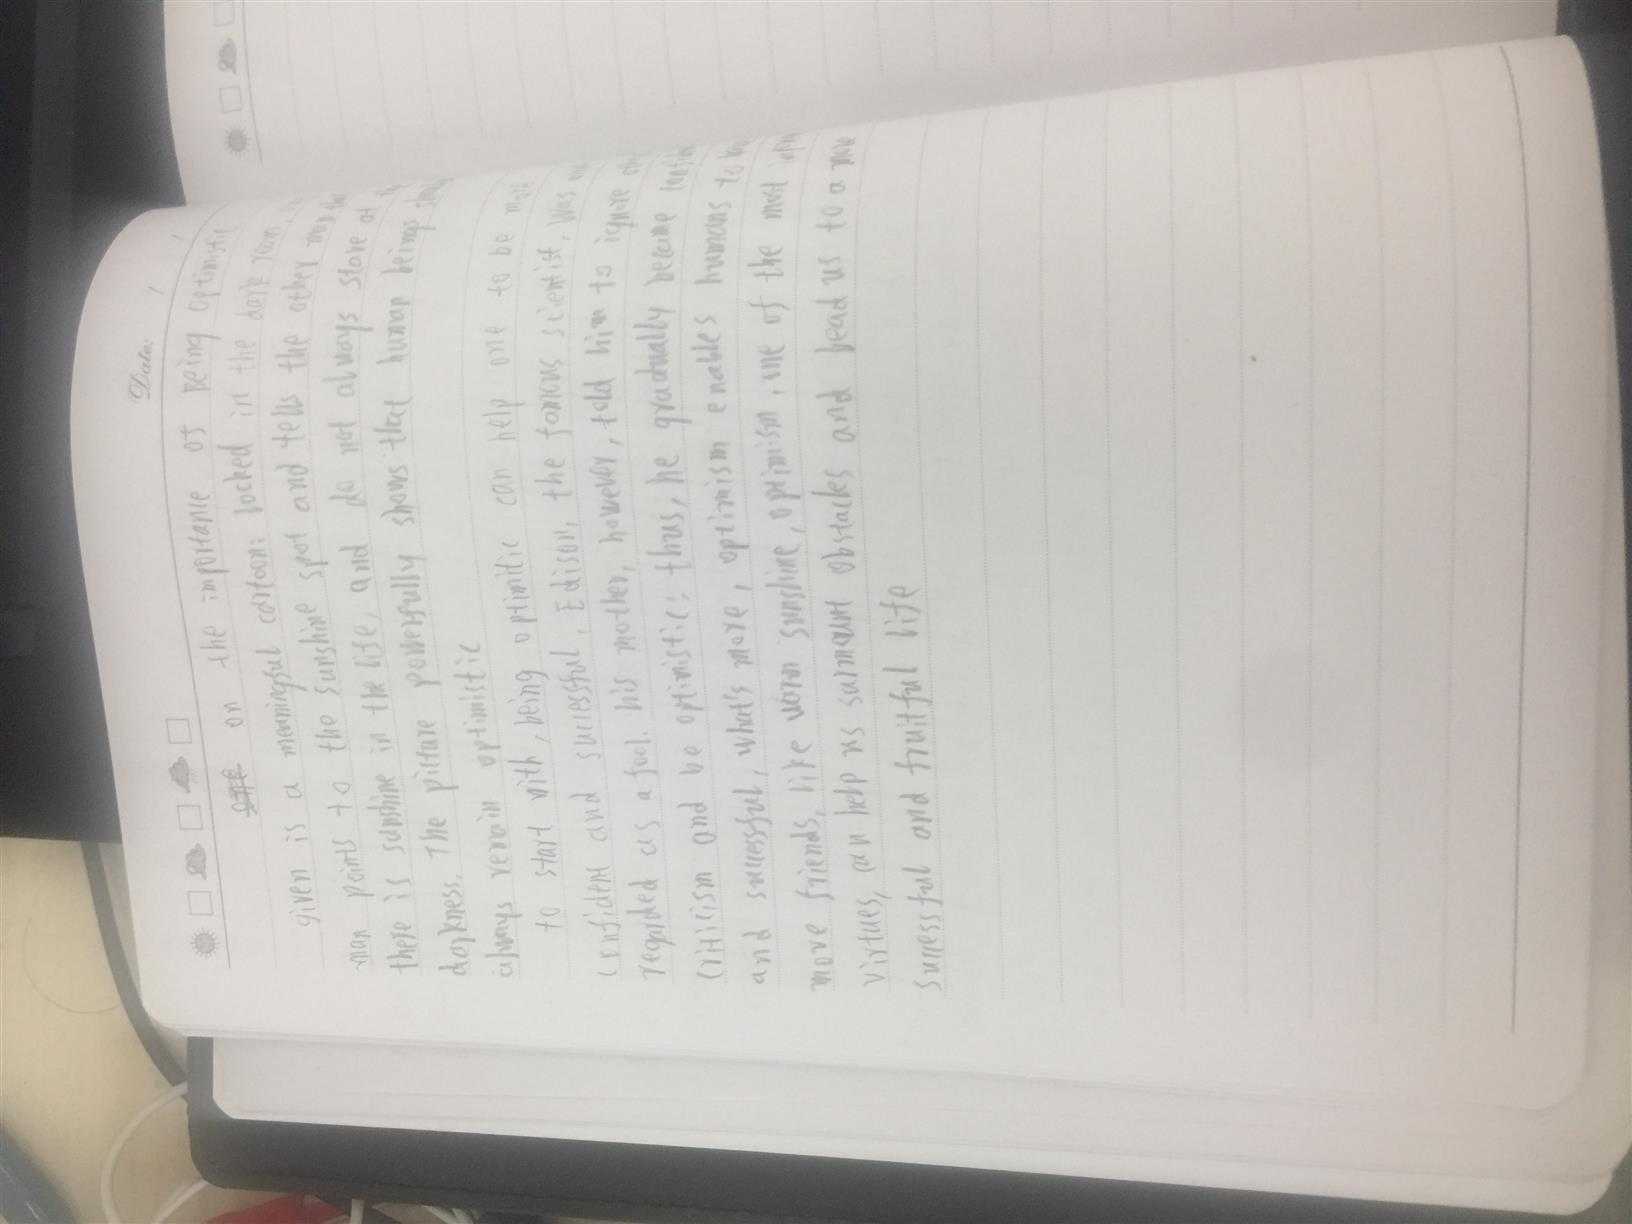 Date:
on the importance of being optimistic
given is a meaningful cartoon: locked in the dark room,
man points to the sunshine spot and tells the other man
there is sunshine in the life, and do not always stare at
darkness. The picture powerfully shows that human beings
always remain optimistic
to start with, being optimitic can help one to be more
confident and successful, Edison, the famous scientist, was
regarded as a fool. his mother, however, told him to ignore
criticism and be optimistic; thus, he gradually became
and successful, what's more, optimism enables humans to
more friends, like warm sunshine, optimism, one of the most
virtues, can help us surmount obstacles and lead us to a more
successful and fruitful life